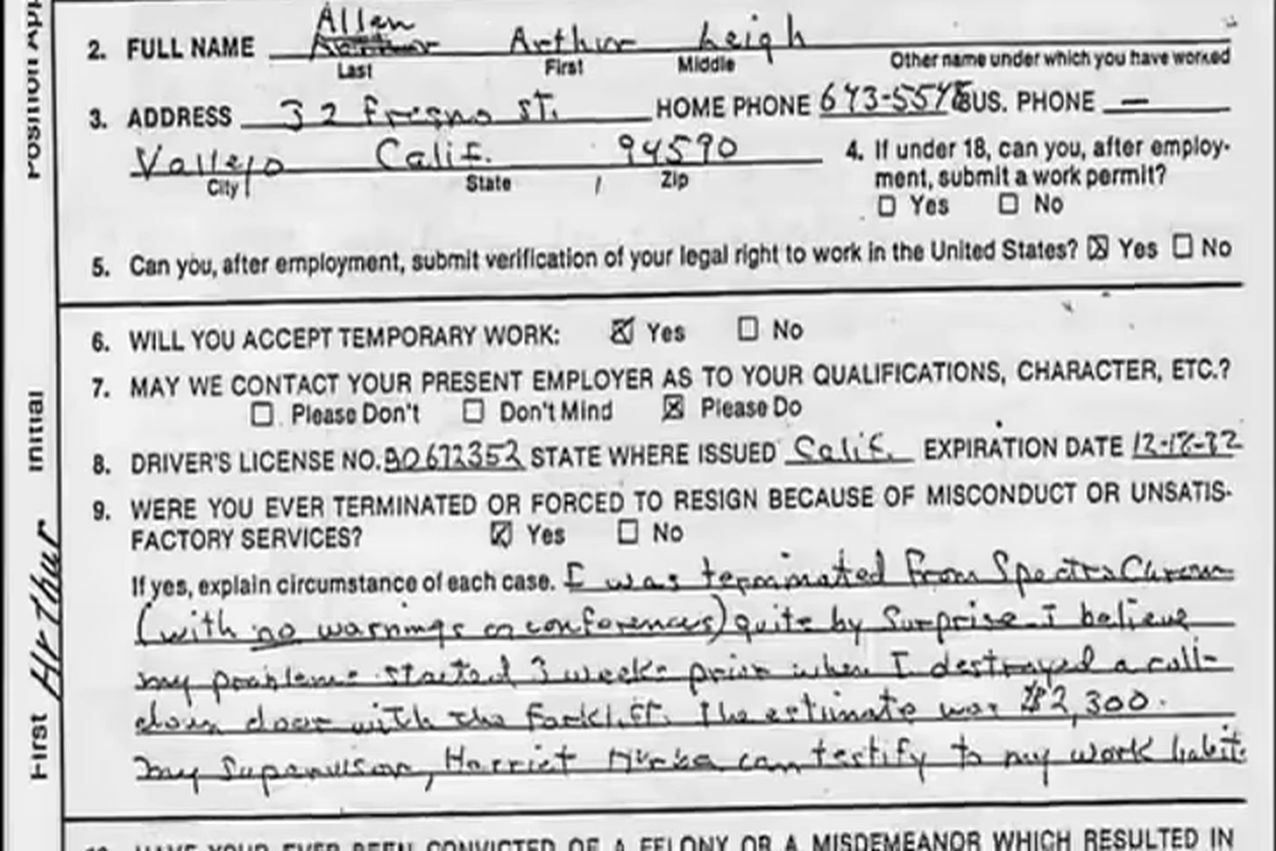 Position App
2. FULL NAME Allen Arthur Leigh
Last First Middle Other name under which you have worked
3. ADDRESS 32 Fresno St. HOME PHONE 643-5575 BUS. PHONE —
Vallejo Calif. 94590
City State Zip
4. If under 18, can you, after employ-
ment, submit a work permit?
☐ Yes ☐ No
5. Can you, after employment, submit verification of your legal right to work in the United States? ☒ Yes ☐ No
6. WILL YOU ACCEPT TEMPORARY WORK: ☒ Yes ☐ No
7. MAY WE CONTACT YOUR PRESENT EMPLOYER AS TO YOUR QUALIFICATIONS, CHARACTER, ETC.?
☐ Please Don't ☐ Don't Mind ☒ Please Do
8. DRIVER'S LICENSE NO. STATE WHERE ISSUED Calif. EXPIRATION DATE
9. WERE YOU EVER TERMINATED OR FORCED TO RESIGN BECAUSE OF MISCONDUCT OR UNSATIS-
FACTORY SERVICES? ☒ Yes ☐ No
If yes, explain circumstance of each case. I was terminated from SpectraChrom
(with no warnings or conferences) quite by Surprise. I believe
my problems started 3 weeks prior when I destroyed a roll-
down door with the forklift. The estimate was $2,300.
my Supervisor, Harriet can testify to my work habits
HAVE YOUR EVER BEEN CONVICTED OF A FELONY OR A MISDEMEANOR WHICH RESULTED IN
First Arthur Initial